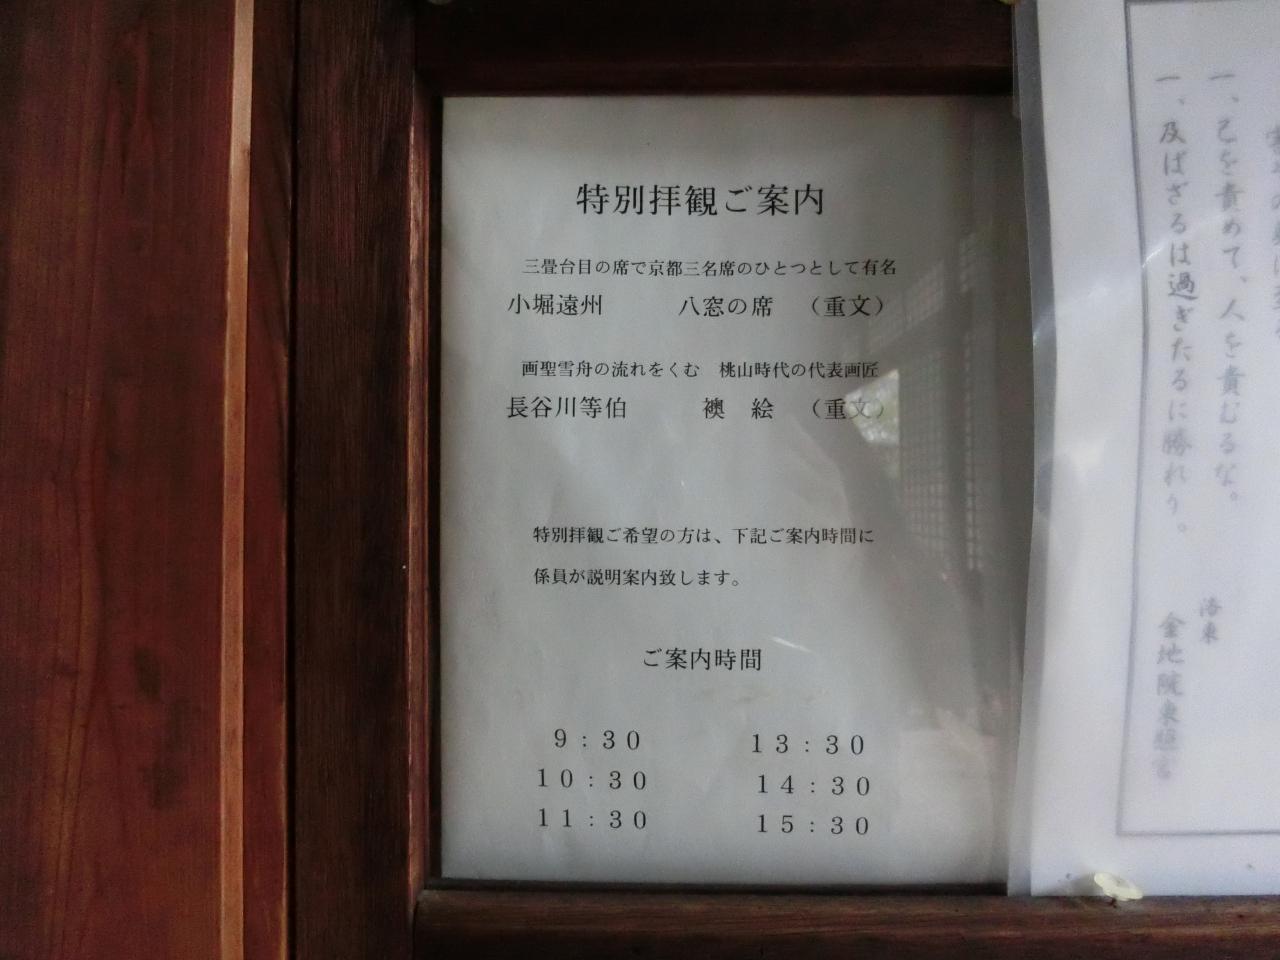 特別拝観ご案内
三畳台目の席で京都三名席のひとつとして有名
小堀遠州　　　八窓の席　（重文）
画聖雪舟の流れをくむ　桃山時代の代表画匠
長谷川等伯　　　襖　絵　（重文）
特別拝観ご希望の方は、下記ご案内時間に
係員が説明案内致します。
ご案内時間
９：３０　　　１３：３０
１０：３０　　　１４：３０
１１：３０　　　１５：３０
一、己を責めて、人を責むるな。
一、及ばざるは過ぎたるに勝れり。
洛東
金地院東照宮